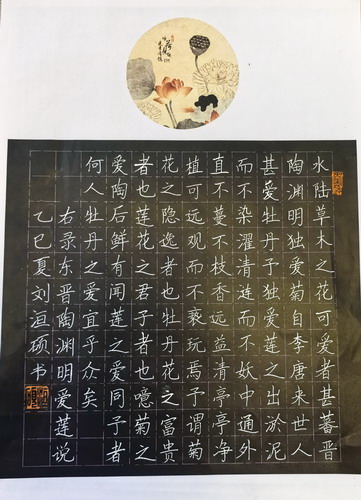 水陆草木之花可爱者甚蕃晋
陶渊明独爱菊自李唐来世人
甚爱牡丹予独爱莲之出淤泥
而不染濯清涟而不妖中通外
直不蔓不枝香远益清亭亭净
植可远观而不亵玩焉予谓菊
花之隐逸者也牡丹花之富贵
者也莲花之君子者也噫菊之
爱陶后鲜有闻莲之爱同予者
何人牡丹之爱宜乎众矣
右录东晋陶渊明爱莲说
乙巳夏刘洹硕书